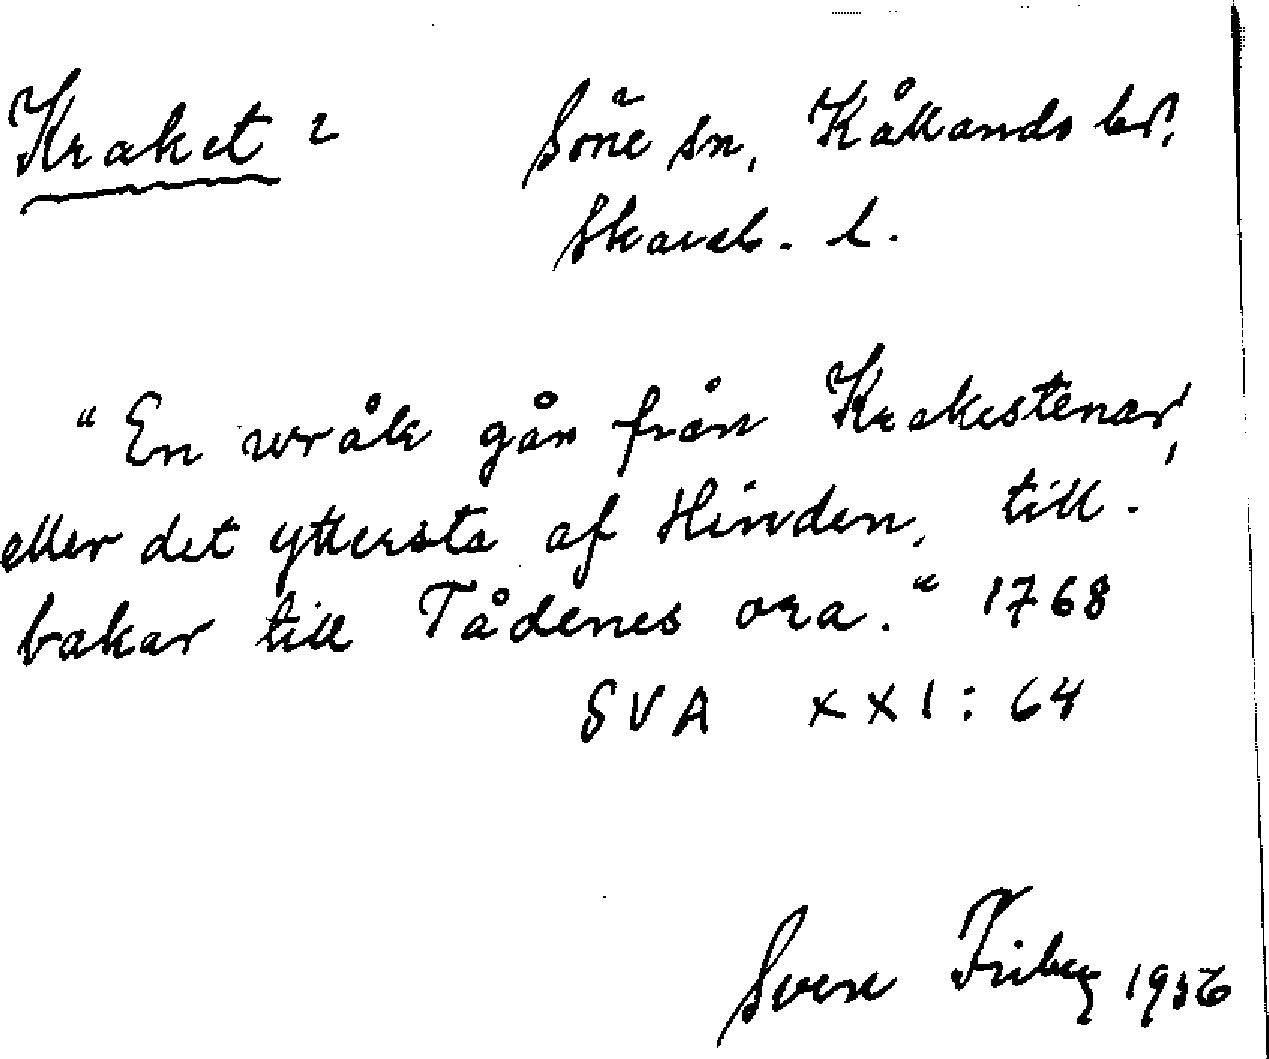 Kraket 2 Söne sn, Kållands hd.
Skarab. l.
"En wråk går från Krakestenar,
eller det yttersta af Hinden, till-
bakar till Tådenes ora." 1768
SVA XXI: 64
Sven Friberg 1956